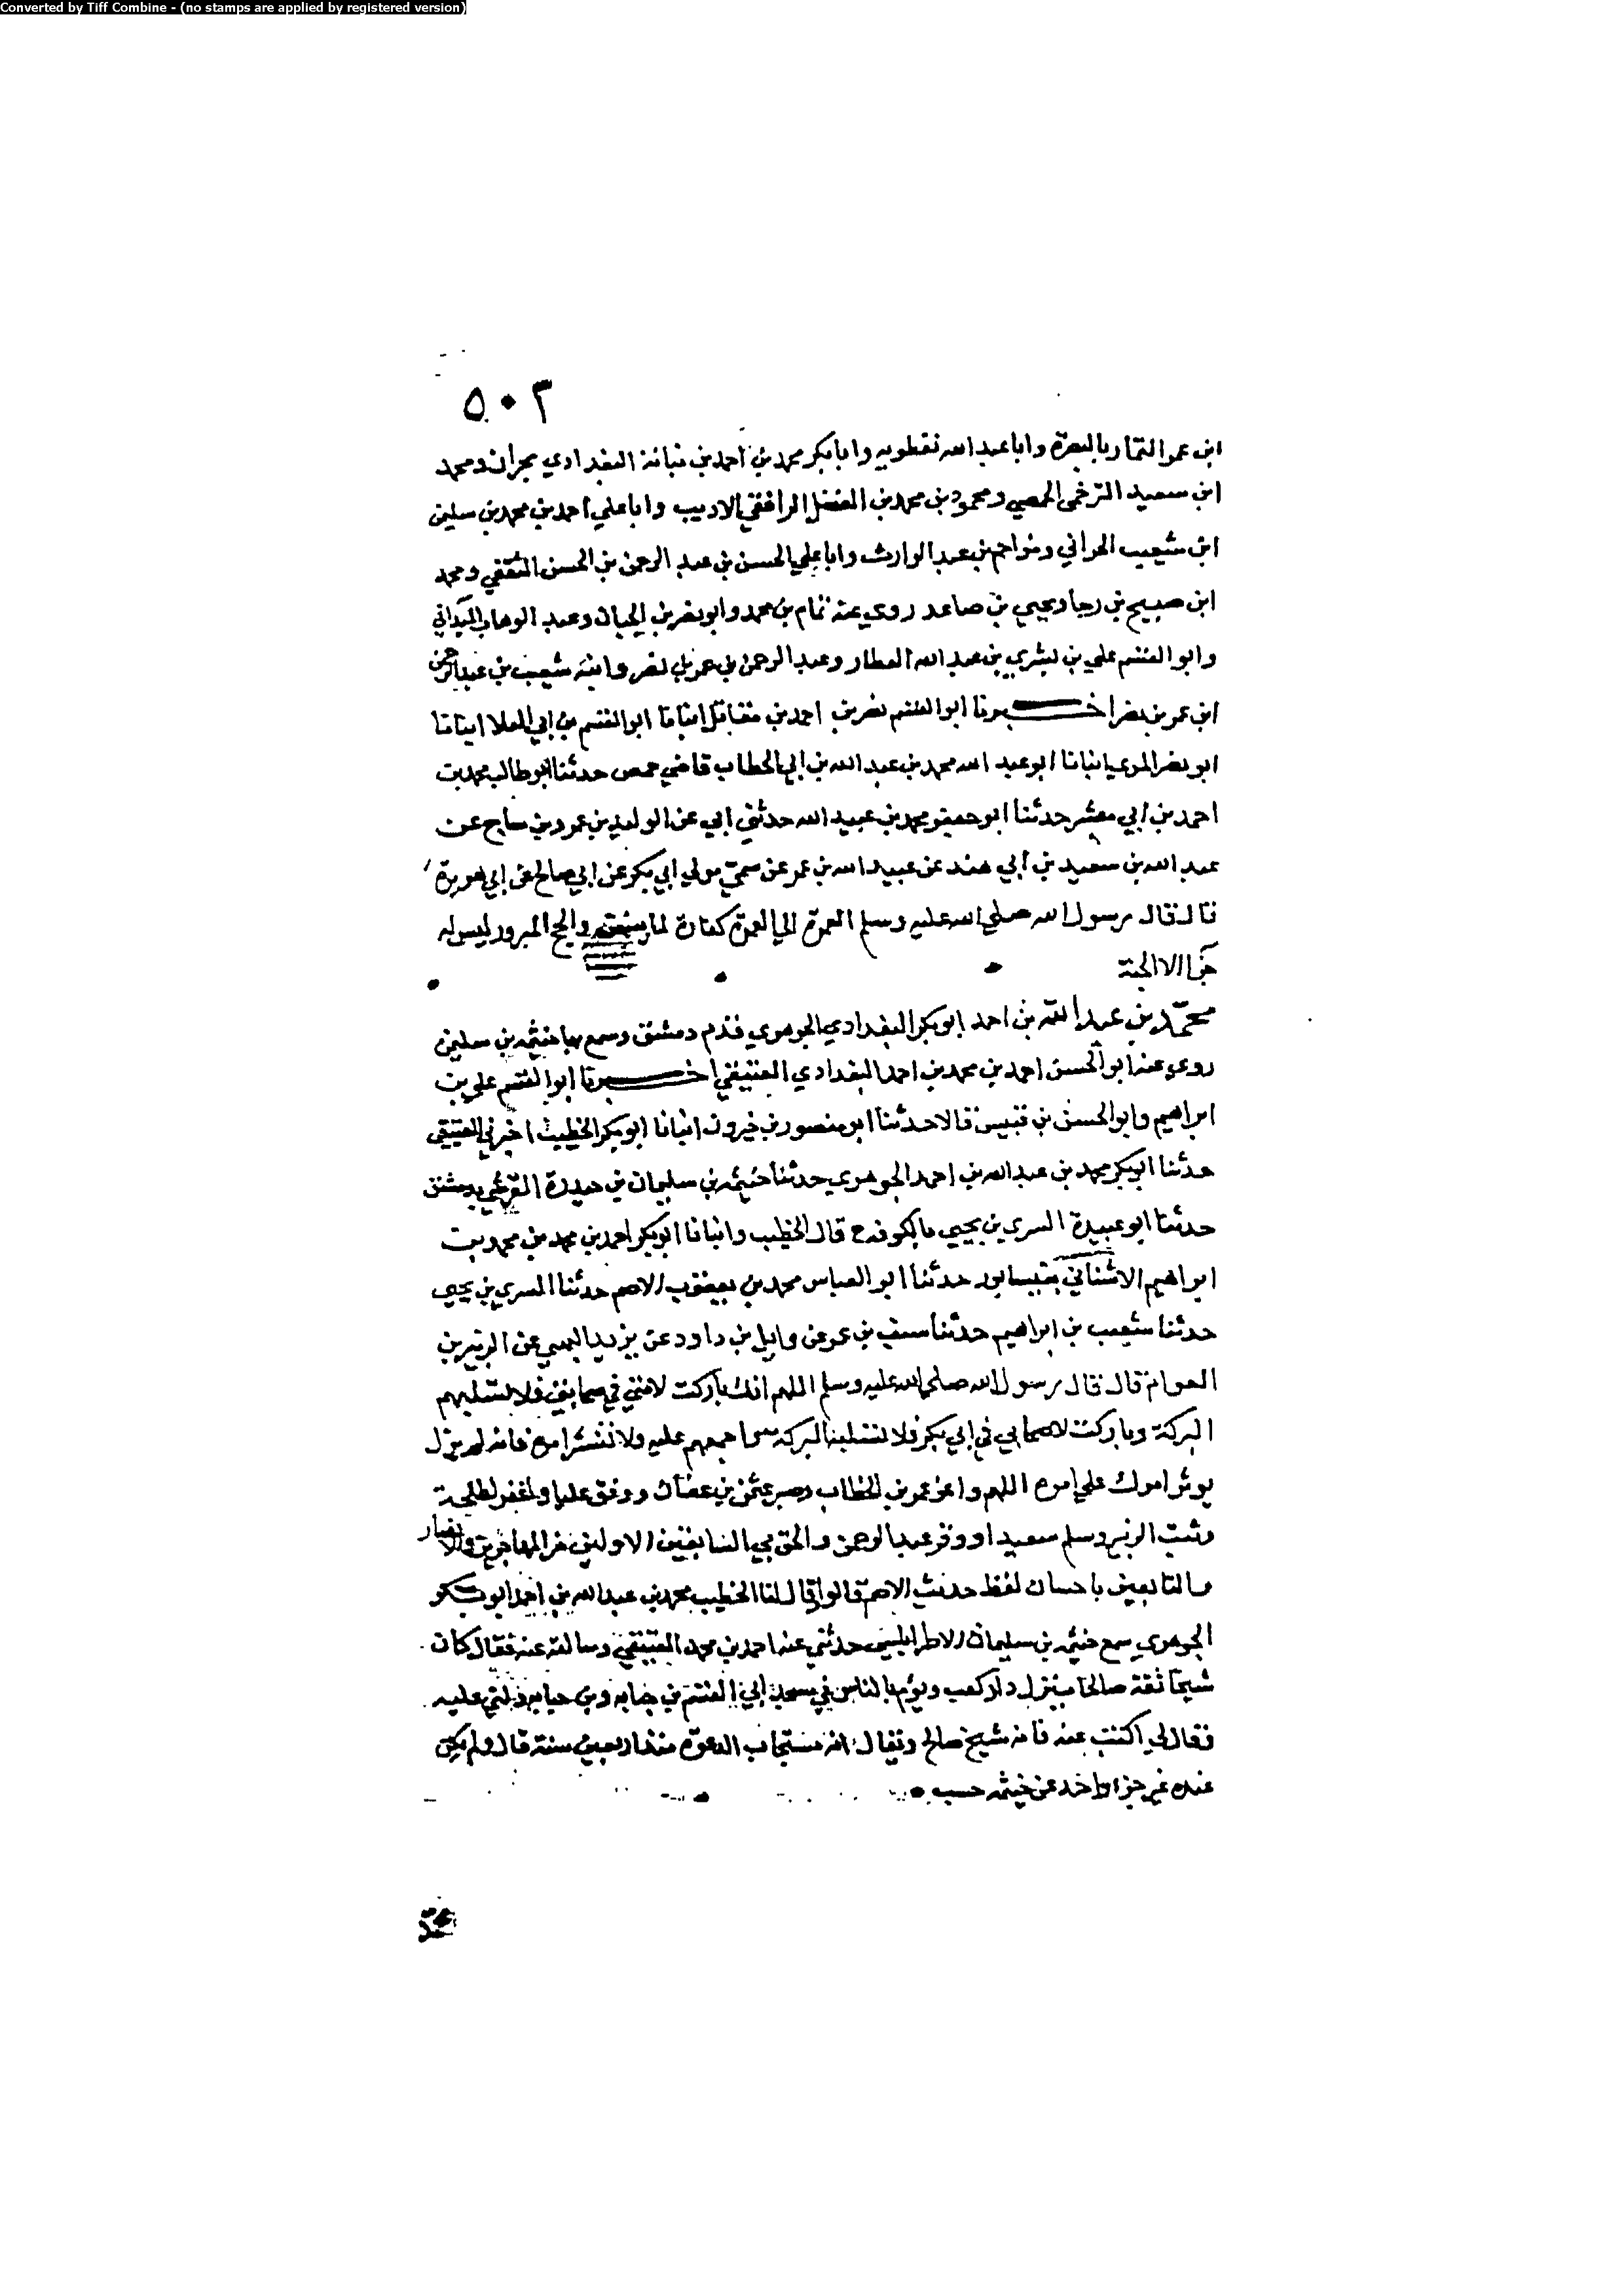 Converted by Tiff Combine - (no stamps are applied by registered version)
٥٠٣
ابن عمر التمار بالبصرة وابا عبد الله نفطويه وابا بكر محمد بن احمد بن نباتة البغدادي بحران ومحمد
ابن سعيد الترخمي الحمصي ومحمود بن محمد بن الفضل الرافقي الاديب وابا علي احمد بن محمد بن سليمن
ابن شعيب الحراني ومزاحم بن عبد الوارث وابا علي الحسن بن عبد الرحمن بن الحسن الثقفي ومحمد
ابن صبيح بن رجا ويحيي بن صاعد روي عنه تمام بن محمد وابو نصر بن الجبان وعبد الوهاب الميداني
وابو القسم علي بن بشري بن عبد الله العطار وعبد الرحمن بن عمر بن نصر وابنه شعيب بن عبد الرحمن
ابن عمر بن نصر اخبرنا ابو القسم نصر بن احمد بن مقاتل انبانا ابو القسم بن ابي العلا انبانا
ابو نصر المري انبانا ابو عبد الله محمد بن عبد الله بن ابي الخطاب قاضي حمص حدثنا ابو طالب محمد بن
احمد بن ابي معشر حدثنا ابو جعفر محمد بن عبيد الله حدثني ابي عن الوليد بن عمرو بن ساج عن
عبد الله بن سعيد بن ابي هند عن عبيد الله بن عمر عن سمي مولي ابي بكر عن ابي صالح عن ابي هريرة
قال قال رسول الله صلي الله عليه وسلم العمرة الي العمرة كفارة لما بينهن والحج المبرور ليس له
جزا الا الجنة
محمد بن عبد الله بن احمد ابو بكر البغدادي الجوهري قدم دمشق وسمع بها خيثمه بن سليمن
روي عنه ابو الحسن احمد بن محمد بن احمد البغدادي العتيقي اخبرنا ابو القسم علي بن
ابراهيم وابو الحسن بن قبيس قالا حدثنا ابو منصور بن خيرون انبانا ابو بكر الخطيب اخبرني العتيقي
حدثنا ابو بكر محمد بن عبد الله بن احمد الجوهري حدثنا خيثمه بن سليمان بن حيدرة القرشي بدمشق
حدثنا ابو عبيدة السري بن يحيي بالكوفه ح قال الخطيب وانبانا ابو بكر احمد بن محمد بن محمد بن
ابراهيم الاشناني بنيسابور حدثنا ابو العباس محمد بن يعقوب الاصم حدثنا السري بن يحيي
حدثنا شعيب بن ابراهيم حدثنا سيف بن عمر عن وايل بن داود عن يزيد البهي عن الزبير بن
العوام قال قال رسول الله صلي الله عليه وسلم اللهم انك باركت لامتي في صحابتي فلا تسلبهم
البركة وباركت لاصحابي في ابي بكر فلا تسلبه البركة واجمعهم عليه ولا تنشر امره فانه لم يزل
يوثر امرك علي امره اللهم واعز عمر بن الخطاب وصبر عثمن بن عفان ووفق عليا واغفر لطلحة
وثبت الزبير وسلم سعيدا ووقر عبد الرحمن والحق بي السابقين الاولين من المهاجرين والانصار
والتابعين باحسان لفظ حديث الاصم قالوا قال لنا الخطيب محمد بن عبد الله بن احمد ابو بكر
الجوهري سمع خيثمه بن سليمان الاطرابلسي حدثني عنه احمد بن محمد العتيقي وسالته عنه فقال كان
شيخا ثقة صالحا ينزل دار كعب ويؤم بالناس في مسجد ابي القسم بن حبابه وبن حبابه دلني عليه
فقال لي اكتب عنه فانه شيخ صالح ويقال انه مستجاب الدعوة منذ اربعين سنة قال ولم يكن
عنده غير جزء واحد عن خيثمه حسب
محمد